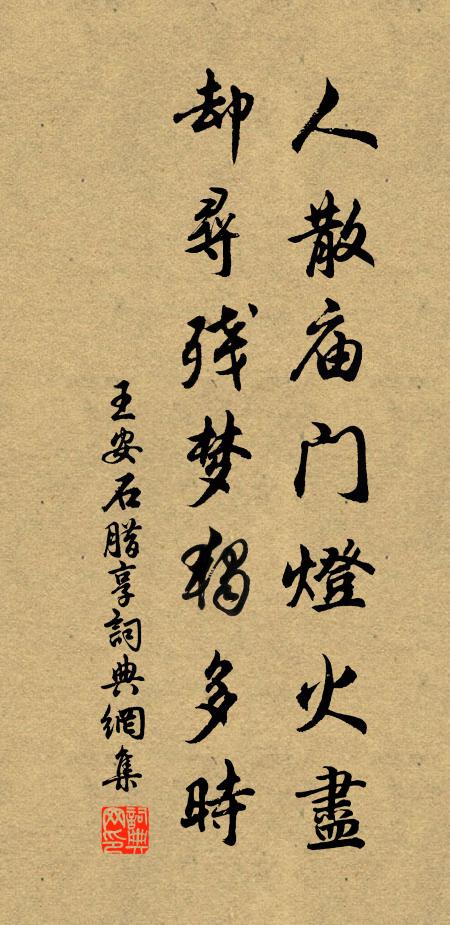 人散庙门燈火盡
却尋残梦獨多時
王安石腊享詞典網集
詞典网印